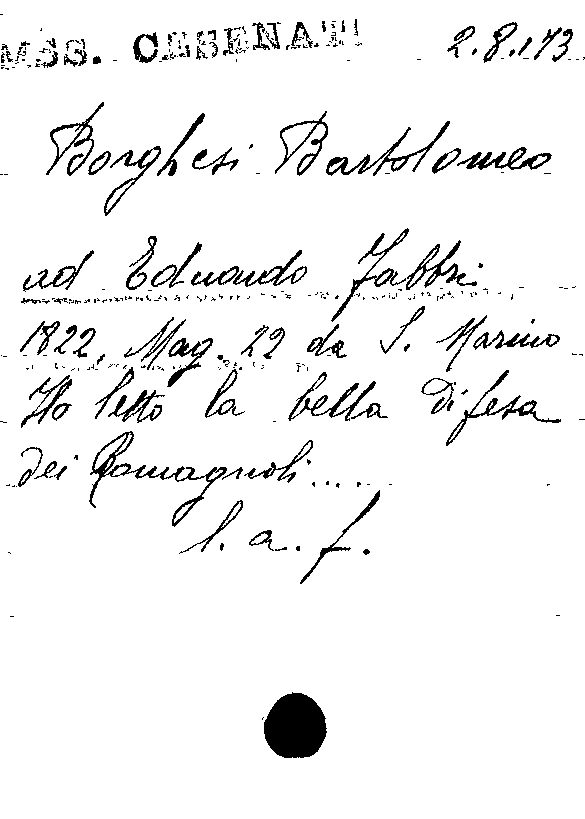 MSS. CESENATI 2.8.173
Borghesi Bartolomeo
ad Eduardo Fabbri
1822, Mag. 22 da S. Marino
Ho letto la bella difesa
dei Romagnoli....
l. a. f.